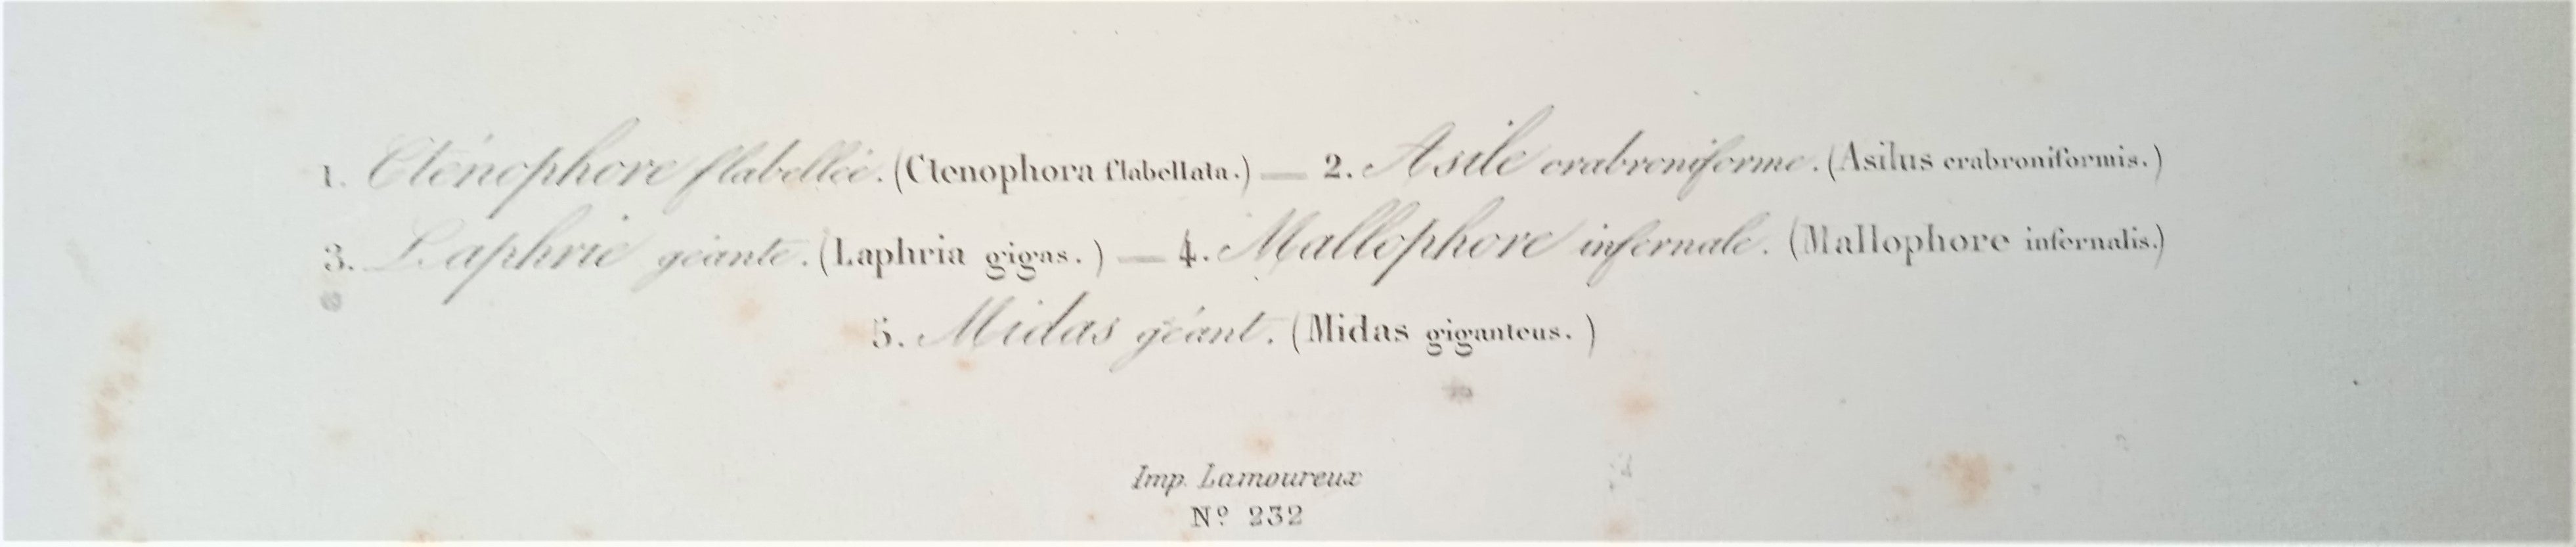 1. Cténophore flabellée. (Ctenophora flabellata.) — 2. Asile crabroniforme. (Asilus crabroniformis.)
3. Laphrie géante. (Laphria gigas.) — 4. Mallophore infernale. (Mallophore infernalis.)
5. Midas géant. (Midas giganteus.)
Imp. Lamoureux
Nº 232